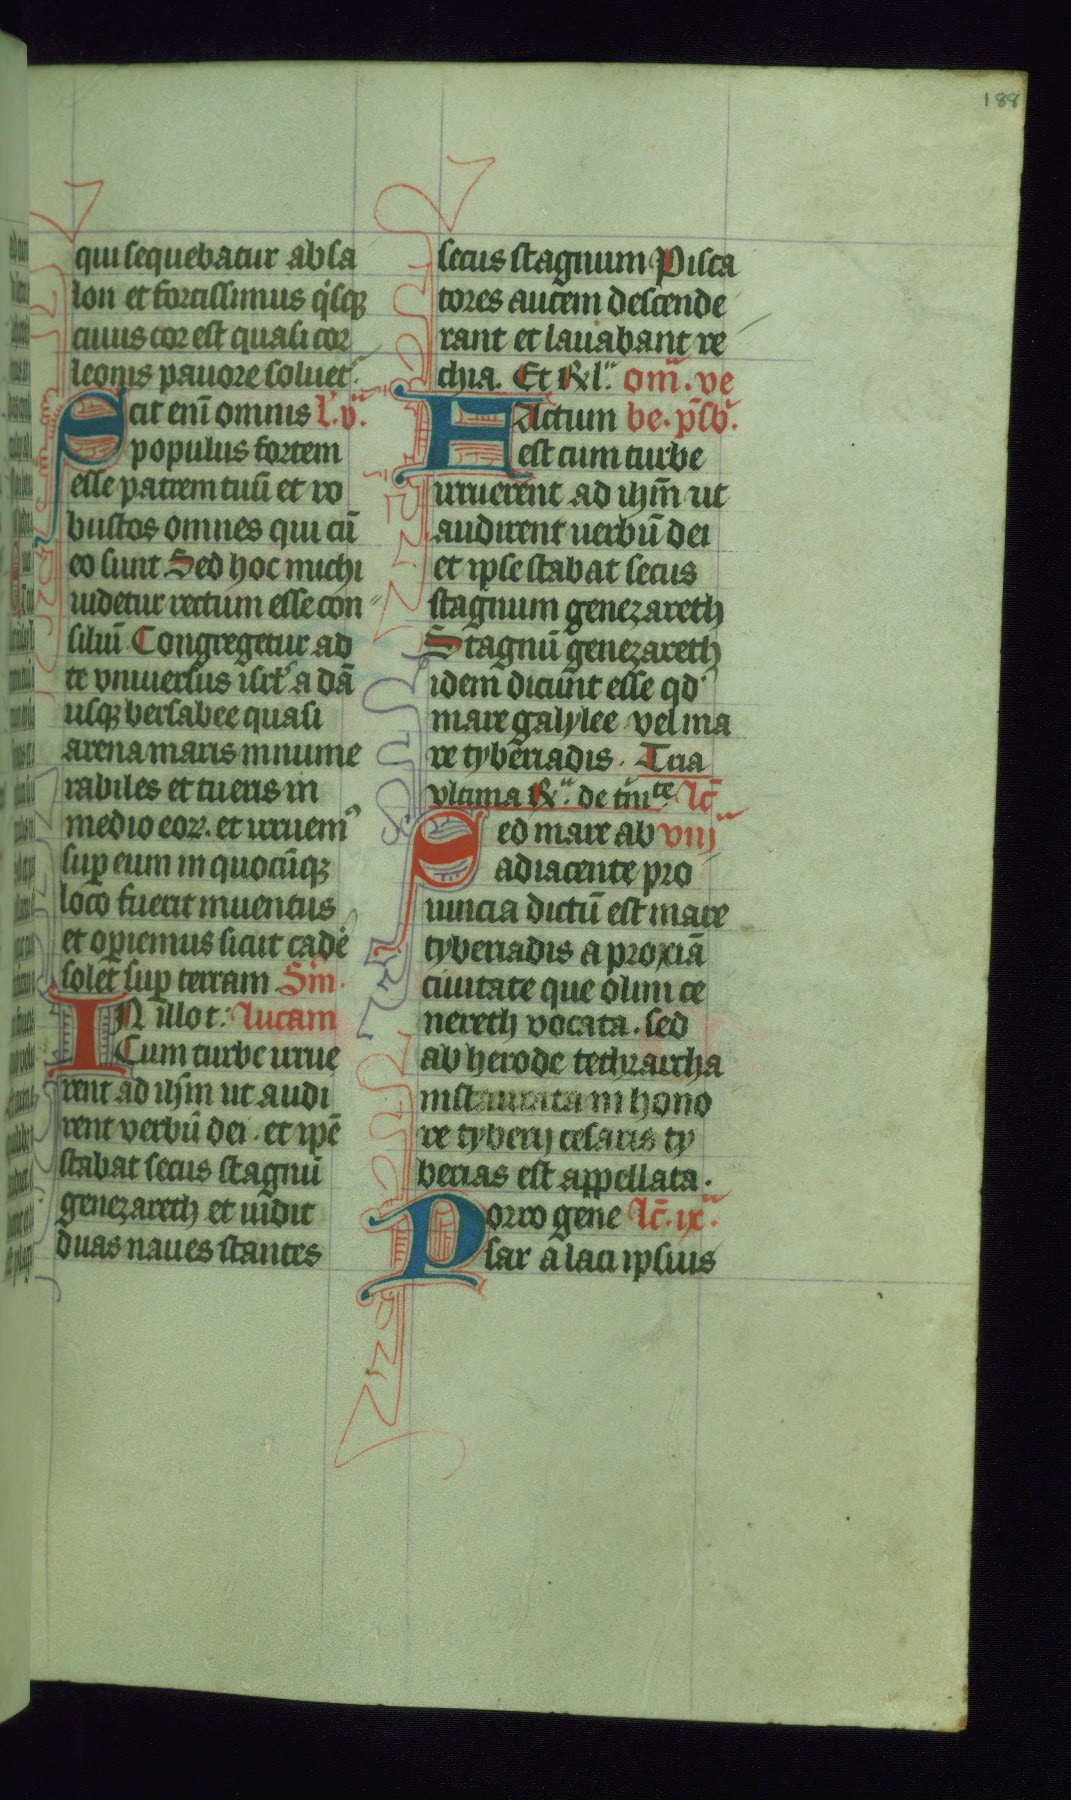 188
qui sequebatur absa
lon et fortissimus q̇sq̨
cuius cor est quasi cor
leonis pauore soluet.
Scit enī omnis l'. v̈.
populus fortem
esse patrem tuū et ro
bustos omnes qui cū
eo sunt Sed hoc michi
uidetur rectum esse con
siliū. Congregetur ad
te vniuersus isrl' a dā
usq̨ bersabee quasi
arena maris innume
rabiles et tu eris in
medio eoꝝ. et irruem᾽
sup eum in quocūq̨
loco fuerit inuentus
et opiemus sicut cadē
solet sup terram Sm̄.
IN illo t: lucam
Cum turbe irrue
rent ad ihm̄ ut audi
rent verbū dei. et ipē
stabat secus stagnū
genezareth et uidit
duas naues stantes
secus stagnum Pisca
tores autem descende
rant et lauabant re
chia. Et Rl. om̄. ve
FActum be. p̄sb'.
est cum turbe
irruerent ad ihm̄ ut
audirent uerbū dei
et ipse stabat secus
stagnum genezareth
Stagnū genezareth
idem dicunt esse qd'
mare galylee vel ma
re tyberiadis. Tcia
vltima R. de tnitᵉ. lc̄
Sed mare ab viij
adiacente pro
uincia dictū est mare
tyberiadis a proxiā
ciuitate que olim ce
nereth vocata. sed
ab herode tethrarcha
instaurata in hono
re tyberij cesaris ty
berias est appellata.
Porro gene lc̄. ix.
sar a laci ipsius